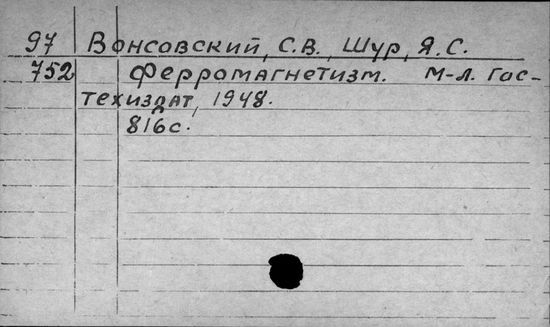 97 Вонсовский, С.В., Шур, Я.С.
752 Ферромагнетизм. М-Л. Гос-
техиздат, 1948.
816с.